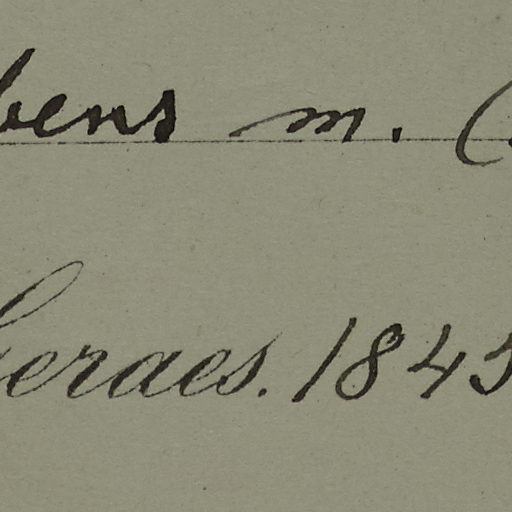 bens m. (
Geraes. 1845